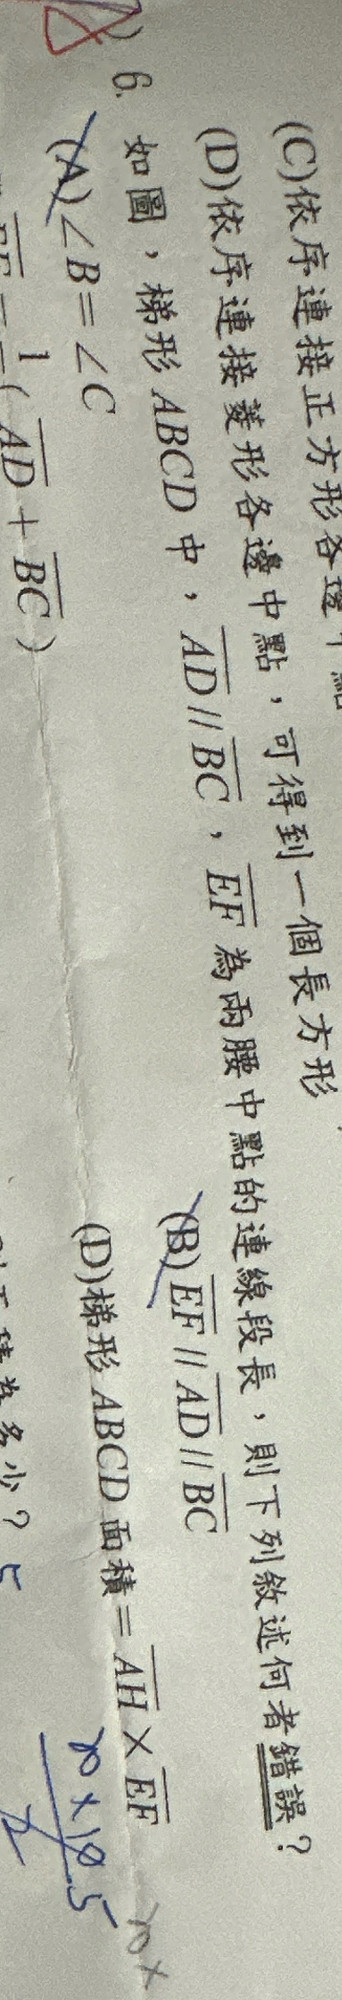 (C)依序連接正方形各邊中點
(D)依序連接菱形各邊中點，可得到一個長方形
6. 如圖，梯形 ABCD 中，AD // BC，EF 為兩腰中點的連線段長，則下列敘述何者錯誤？
(A) ∠B = ∠C
(B) EF // AD // BC
1
(AD + BC)
(D)梯形 ABCD 面積 = AH × EF
多少？5